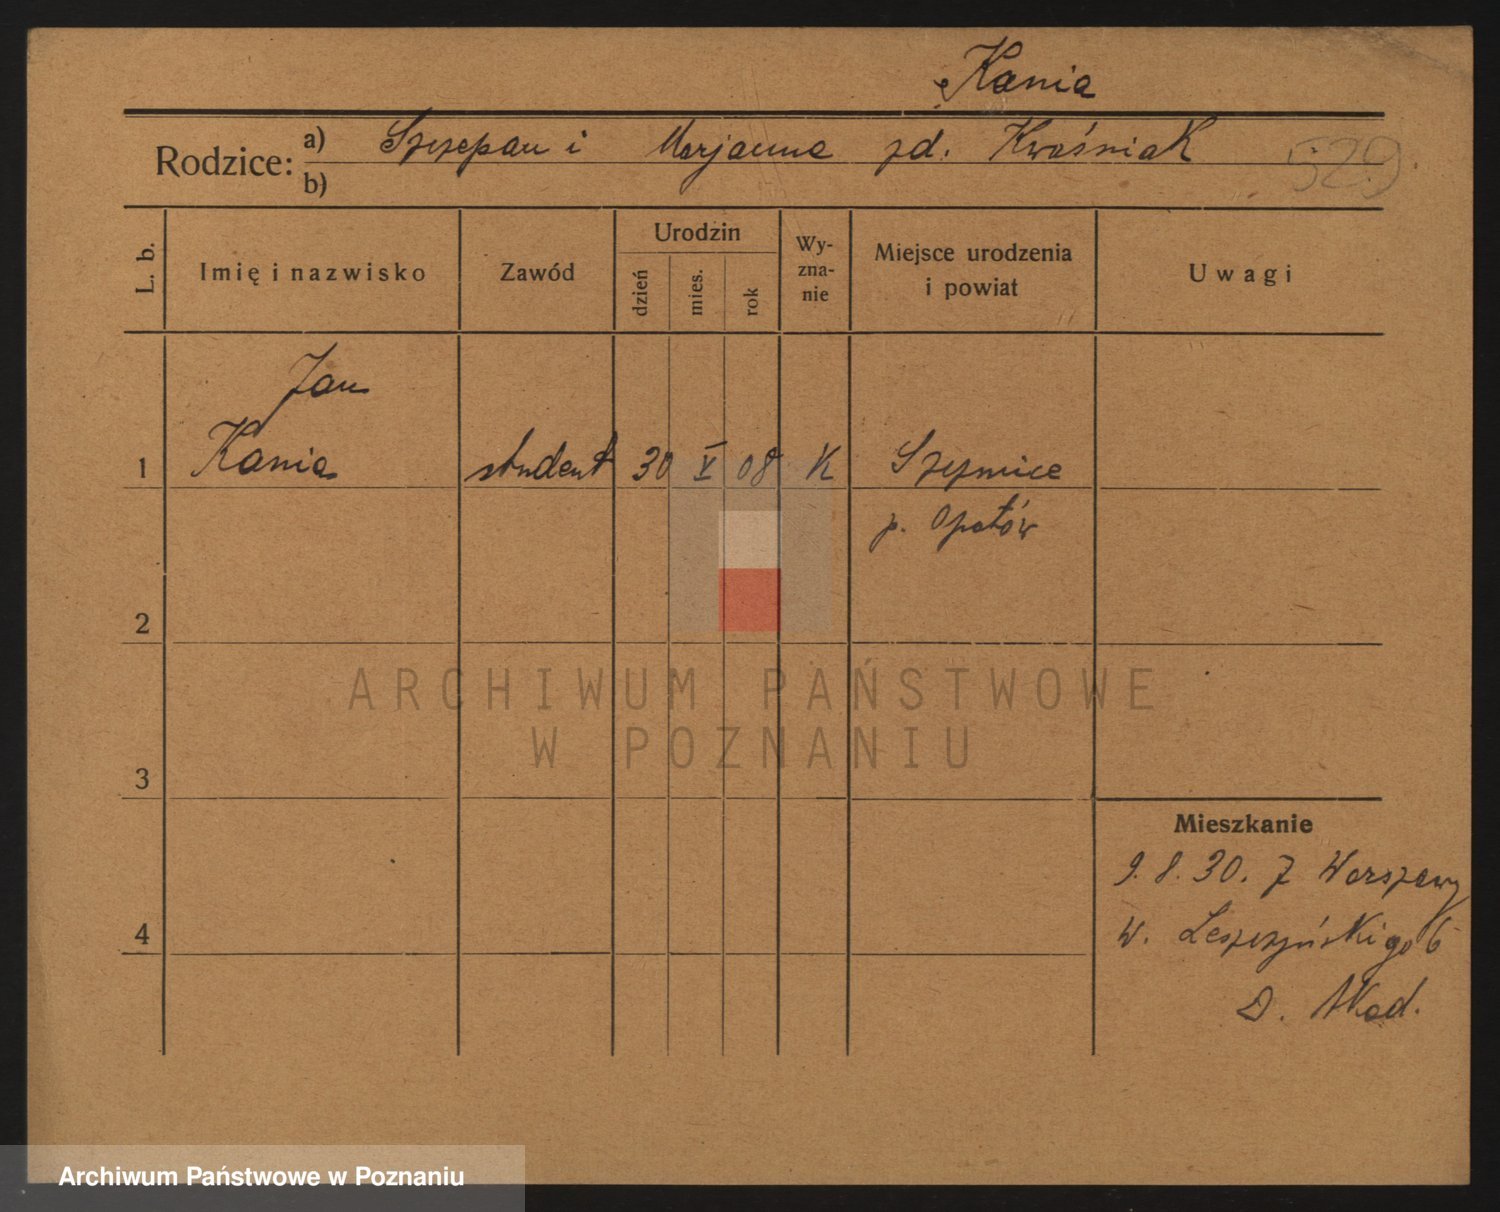 Kania
Rodzice: a) Szczepan i Marjanna zd. Kwaśniak
b)
529
L. b.
Imię i nazwisko
Zawód
Urodzin
dzień
mies.
rok
Wy-
zna-
nie
Miejsce urodzenia
i powiat
Uwagi
Jan
1 Kania student 30 V 08 K
p. Opatów
2
3
4
Mieszkanie
9.8.30. z Warszawy
W. Leszczyńskiego 6
D. Akad.
ARCHIWUM PAŃSTWOWE
W POZNANIU
Archiwum Państwowe w Poznaniu